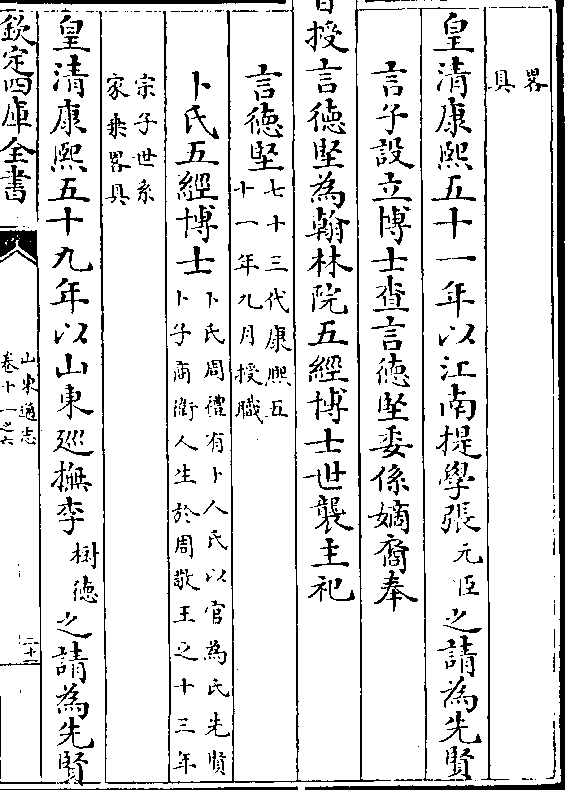 畧
具
皇清康熙五十一年以江南提學張元臣之請為先賢
言子設立博士查言德堅委係嫡裔奉
旨授言德堅為翰林院五經博士世襲主祀
言德堅七十三代康熙五
十一年九月授職
卜氏五經博士卜氏周禮有卜人氏以官為氏先賢
卜子商衞人生於周敬王之十三年
宗子世系
家乘畧具
皇清康熙五十九年以山東巡撫李樹德之請為先賢
欽定四庫全書
山東通志
卷十一之六
二十一